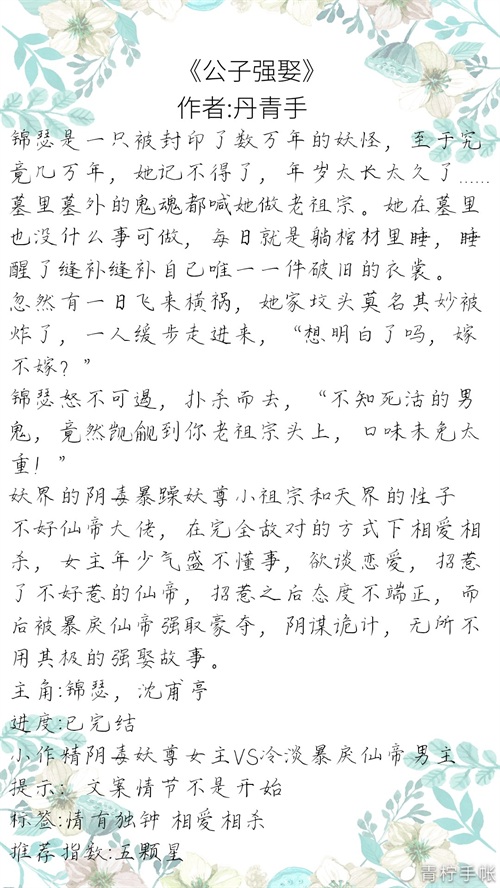 《公子强娶》
作者:丹青手
锦瑟是一只被封印了数万年的妖怪，至于究
竟几万年，她记不得了，年岁太长太久了……
墓里墓外的鬼魂都喊她做老祖宗。她在墓里
也没什么事可做，每日就是躺棺材里睡，睡
醒了缝补缝补自己唯一一件破旧的衣裳。
忽然有一日飞来横祸，她家坟头莫名其妙被
炸了，一人缓步走进来，“想明白了吗，嫁
不嫁？”
锦瑟怒不可遏，扑杀而去，“不知死活的男
鬼，竟然觊觎到你老祖宗头上，口味未免太
重！”
妖界的阴毒暴躁妖尊小祖宗和天界的性子
不好仙帝大佬，在完全敌对的方式下相爱相
杀，女主年少气盛不懂事，欲谈恋爱，招惹
了不好惹的仙帝，招惹之后态度不端正，而
后被暴戾仙帝强取豪夺，阴谋诡计，无所不
用其极的强娶故事。
主角:锦瑟，沈甫亭
进度:已完结
小作精阴毒妖尊女主VS冷淡暴戾仙帝男主
提示：文案情节不是开始
标签:情有独钟 相爱相杀
推荐指数:五颗星
青柠手帐